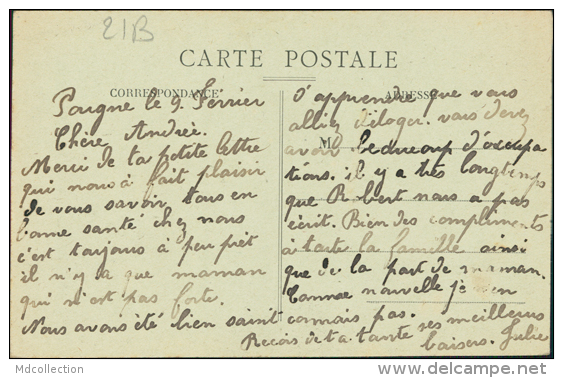 21B
CARTE POSTALE
CORRESPONDANCE
ADRESSE
M
Poigne le 9. Fevrier
Chère Andrée.
Merci de ta petite lettre
qui nous à fait plaisir
de vous savoir tous en
bonne santé chez nous
c'est toujours à peu prèt
il n'y a que maman
qui n'est pas forte.
Nous avons été bien saint
d'apprendre que vous
alliez déloger. vous devez
avoir beaucoup d'occupa
tions. il y a très longtemps
que Robert nous a pas
écrit. Bien des compliments
à toute la famille ainsi
que de la part de maman.
Comme nouvelle je n'en
connais pas.
Recois de ta tante ses meilleurs
baisers. Julie
Mdcollection
delcampe.net